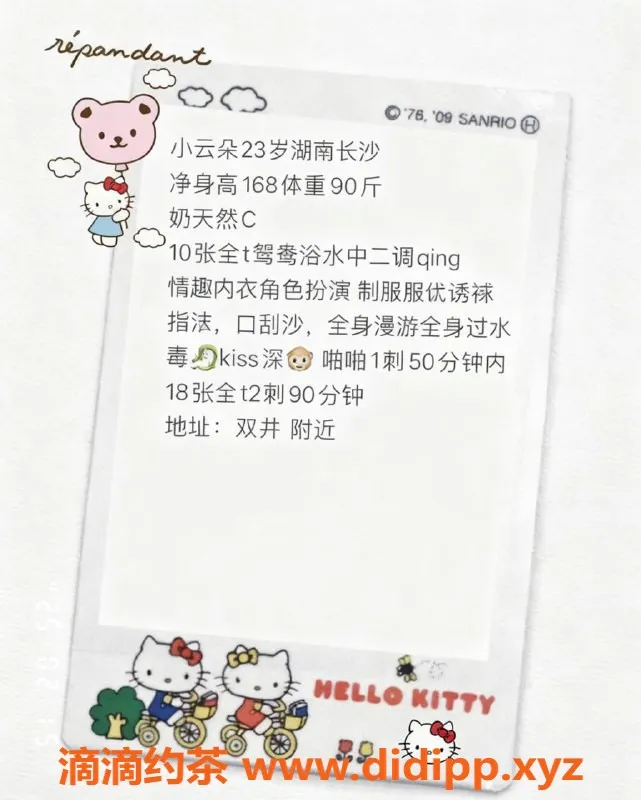 répandant
© '76, '09 SANRIO Ⓗ
小云朵23岁湖南长沙
净身高168体重90斤
奶天然C
10张全t鸳鸯浴水中二调qing
情趣内衣角色扮演 制服服优诱袜
指法，口刮沙，全身漫游全身过水
毒🐉kiss深🐵 啪啪1刺50分钟内
18张全t2刺90分钟
地址：双井 附近
HELLO KITTY
滴滴约茶 www.didipp.xyz